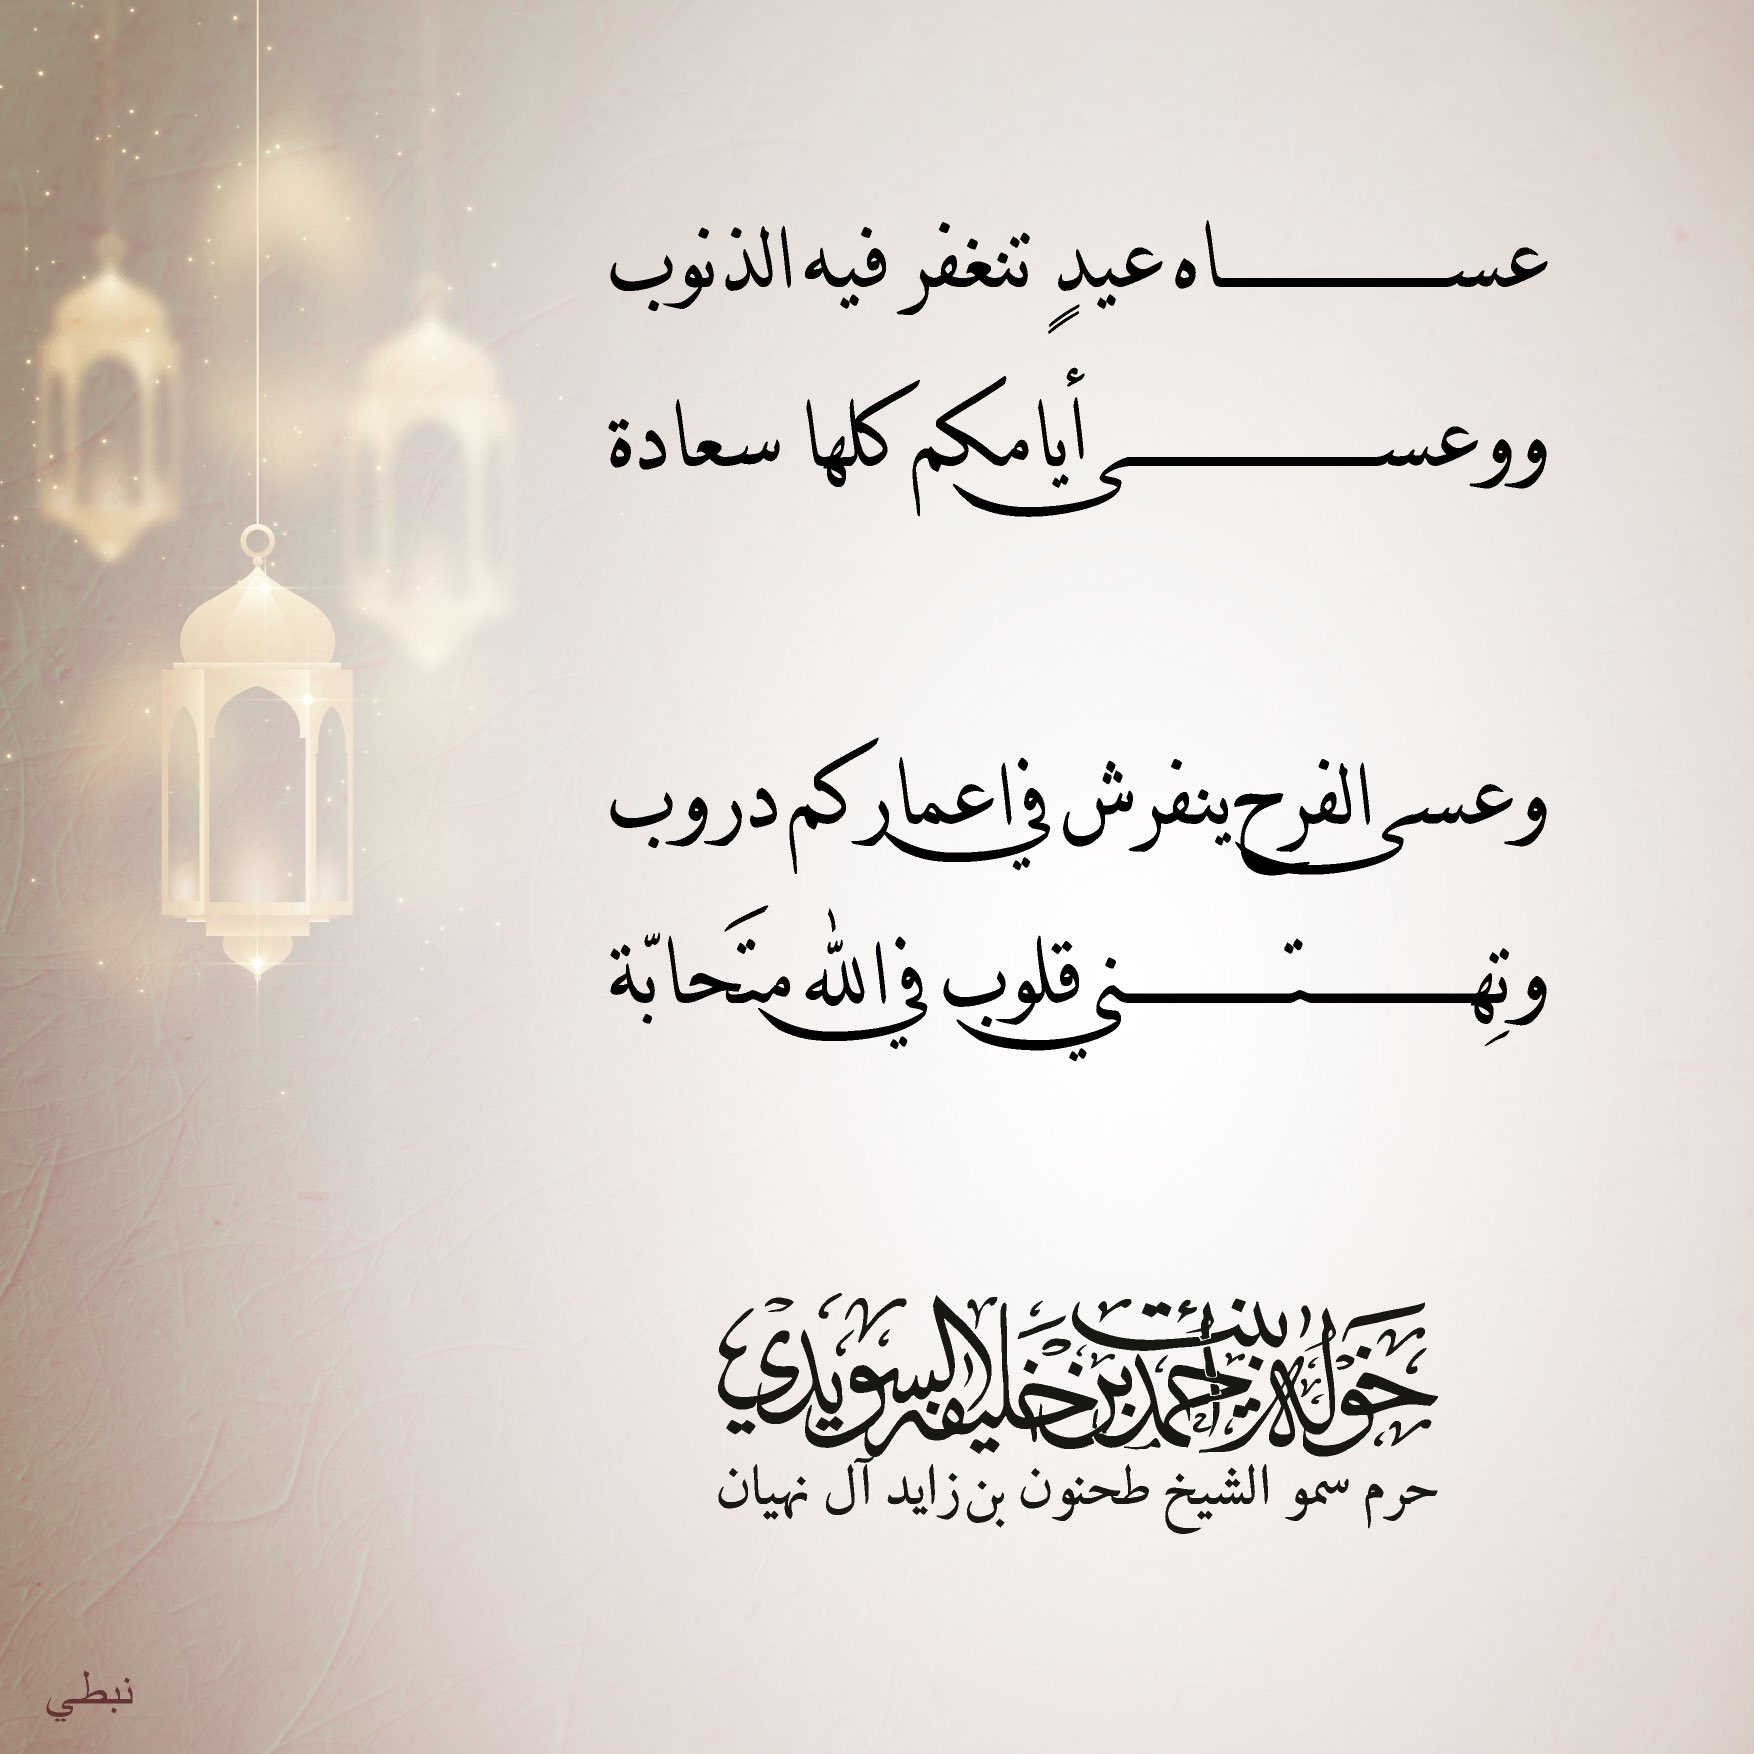 عساه عيدٍ تنغفر فيه الذنوب
ووعسى أيامكم كلها سعادة
وعسى الفرح ينفرش في اعماركم دروب
وتِهتني قلوب في الله متَحابّة
خولة بنت أحمد بن خليفة السويدي
حرم سمو الشيخ طحنون بن زايد آل نهيان
نبطي